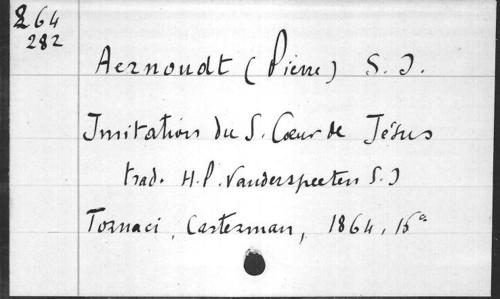 264
282
Aernoudt (Pierre) S. J.
Imitation du S. Cœur de Jésus
trad. H. P. Vanderspeeten S. J
Tornaci, Casterman, 1864,